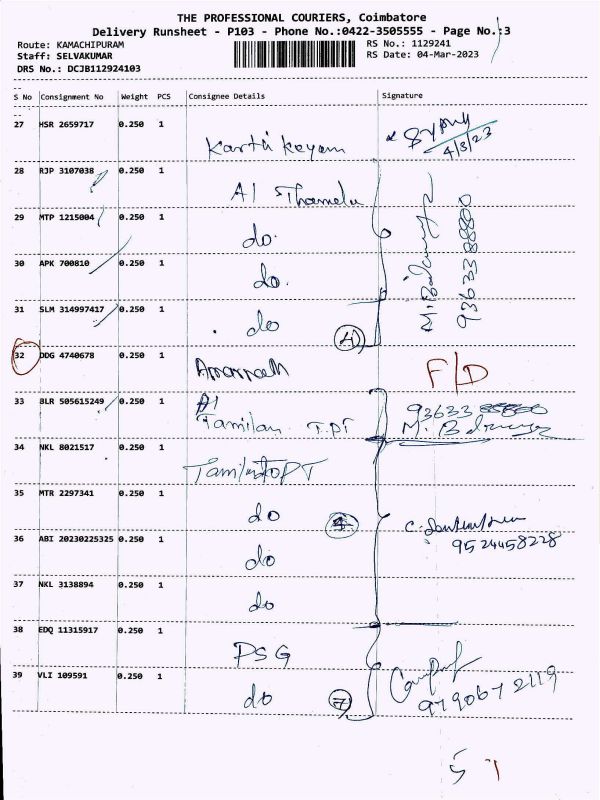 THE PROFESSIONAL COURIERS, Coimbatore
Delivery Runsheet - P103 - Phone No.:0422-3505555 - Page No.:3
Route: KAMACHIPURAM
RS No.: 1129241
Staff: SELVAKUMAR
RS Date: 04-Mar-2023
DRS No.: DCJB112924103
S No Consignment No Weight PCS Consignee Details Signature
27 HSR 2659717 0.250 1 Karthikeyam
4/3/23
28 RJP 3107038 0.250 1 A1 Thamelu
29 MTP 1215004 0.250 1 do.
30 APK 700810 0.250 1 do.
31 SLM 314997417 0.250 1 do 4
32 DDG 4740678 0.250 1 F/D
33 BLR 505615249 0.250 1 A1 Tamilan T.PT
34 NKL 8021517 0.250 1
35 MTR 2297341 0.250 1 do
36 ABI 20230225325 0.250 1 do
9524458228
37 NKL 3138894 0.250 1 do
38 EDQ 11315917 0.250 1 PSG
39 VLI 109591 0.250 1 do 7
9790672119